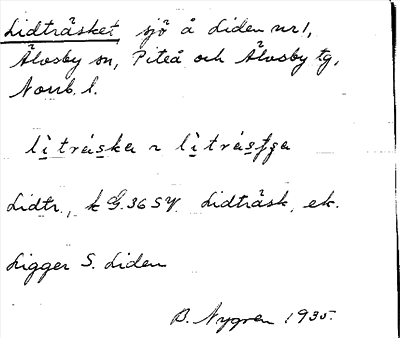 Lidträsket sjö å Liden nr 1,
Älvsby sn, Piteå och Älvsby tg,
Norrb. l.
Lidtr., k G.36 SV. Lidträsk, ek.
Ligger S. Liden
B. Nygren 1935.